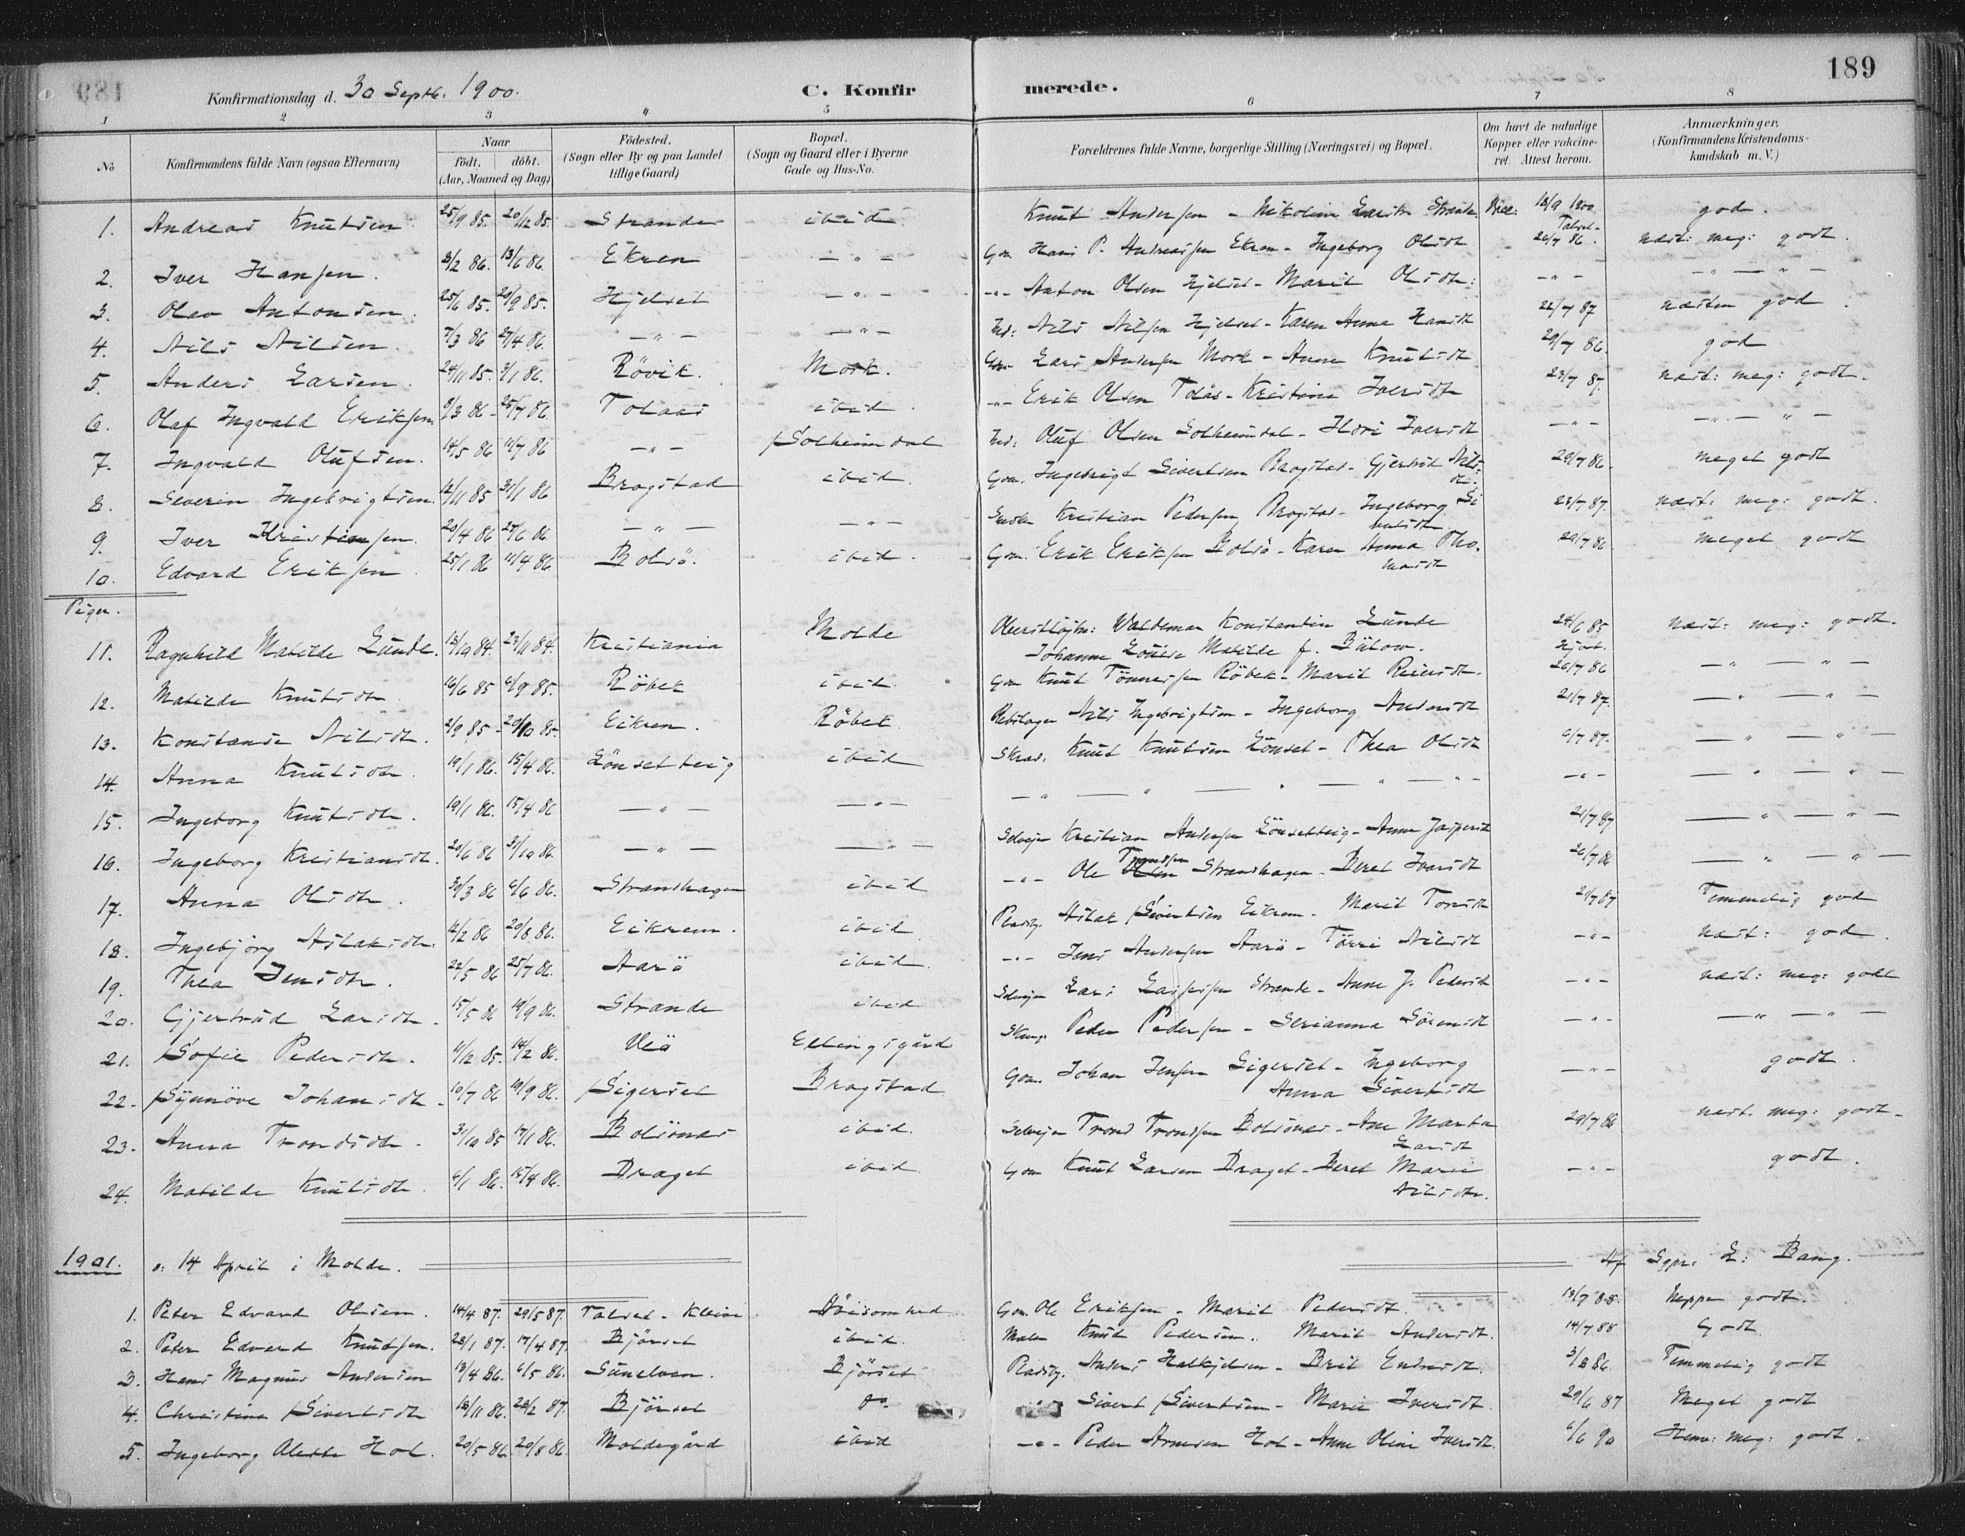 189
Konfirmationsdag d. 30 Septb. 1900. C. Konfirmerede.
1 2 3 " 5 6 7 8
No Konfirmandens fulde Navn (ogsaa Efternavn) Naar født, døbt. (Aar, Maaned og Dag) Fødested. (Sogn eller By og paa Landet tillige Gaard) Bopæl. (Sogn og Gaard eller i Byerne Gade og Hus-No. Forældrenes fulde Navne, borgerlige Stilling (Næringsvei) og Bopæl. Om havt de naturlige Kopper eller vakcineret. Attest herom. Anmærkninger. (Konfirmandens Kristendomskundskab m. V.)
1. Andreas Knutsen 25/9 85. 20/12 85. Strande ibid. Knut Andersen - Nikoline Larsdtr Strande 18/9 1900 god.
2. Iver Hansen. 2/2 86. 13/6 86. Ekren - " - Gm. Hans P. Andreassen Ekren - Ingeborg Olsdt 26/7 86. næst: meg: godt.
3. Olav Antonsen. 25/6 85. 20/9 85. Hjelset - " - - " - Anton Olsen Hjelset - Marit Olsdtr: - " - - " - " -
4. Nils Nilsen. 7/3 86 27/4 86. - " - - " - Ind: Nils Nilsen Hjelset - Karen Anna Hansdt 22/7 87 næsten god.
5. Anders Larsen. 24/11 85. 3/1 86. Røvik. Mork. Gm. Lars Andersen Mork - Anne Knutsdt 29/7 86. god
6. Olaf Ingvald Eriksen 9/3 86 - 25/7 86 Tolaas ibid. - " - Erik Olsen Tolås - Kristine Iversdt 23/7 87. næst: meg: godt.
7. Ingvald Olufsen. 14/5 86 11/7 86 - " - Solheimdal Ind: Oluf Olsen Solheimdal - Iversdt - " - - " - " -
8. Severin Ingebrigtsen. 12/11 85 31/1 86 Bragstad ibid. Gm. Ingebrigt Sivertsen Bragstad - Gjertrud Nilsdt. 29/7 86. meget godt
9. Iver Kristiansen. 20/4 86 27/6 86 - " - - " - Kristian Pedersen Bragstad - Ingeborg Sivertsdt 23/7 87. næst: meg: godt.
10. Edvard Eriksen. 25/1 86 11/4 86 Bolsö. ibid. Gm. Erik Eriksen Bolsö - Karen Anna Thomasdt 29/7 86. meget godt
Piger.
11. Ragnhild Matilde Lunde. 13/10 84. 23/11 84. Kristiania Molde Oberstløjtn: Waldemar Konstantin Lunde Johanne Louise Matilde f. Bülow. 24/6 85 næst: meg: godt.
12. Matilde Knutsdt 16/6 85 6/9 85. Røbek ibid. Gm Knut Tönnessen Røbek - Marit Reiersdt. 26/7 86 - " - " -
13. Konstanse Nilsdt. 2/9 85 - 20/10 85. Eikren. Røbek. Rebslager Nils Ingebrigtsen - Ingeborg Andersdt 21/7 87. - " - " -
14. Anna Knutsdt. 19/1 86. 15/4 86. Lönsetteig ibid Skræd. Knut Knutsen Lönset - Thea Olsdt 6/7 87. - " - " -
15. Ingeborg Knutsdtr. 19/1 86. 15/4 86 - " - - " - - " - " - " - " - - " - - " - " -
16. Ingeborg Kristiansdt. 20/6 86 31/10 86. - " - - " - Selvejer Kristian Andersen Lönsetteig - Anne Jespersdt 21/7 87 - " - " -
17. Anna Olsdtr. 30/3 86 6/6 86. Strandhagen ibid - " - Ole Trondsen Strandhagen - Beret Iversdt 26/7 86 - " - " -
18. Ingebjörg Aslaksdtr. 4/2 86 20/8 86. Eikrem. ibid. Pladsbg. Aslak Sivertsen Eikrem - Marit Toresdt 20/7 87 Temmelig god
19. Thea Jensdtr. 22/5 86 25/7 86. Aarö ibid. - " - Jens Andersen Aarö - Törri Nilsdt - " - næst: god.
20. Gjertrud Larsdtr. 15/5 86 19/9 86. Strande ibid Selvejer Lars Strande - Anne J. Pedersdt - " - næst: meg: godt
21. Sofie Pedersdt. 11/12 85. 14/2 86. Veö Ellingsgård Peder Pedersen - Serianna Sörensdt - " - - " - " -
22. Synnöve Johansdt. 10/7 86 19/9 86. Sigerset Bragstad Gm. Johan Jensen Sigerset - Ingeborg Anna Sivertsdt - " - godt.
23. Anna Trondsdt. 31/10 85 17/1 86. Bolsönes ibid. Selvejer Trond Trondsen Bolsönes - Ane Marta Larsdt 29/7 86 næst. meg: godt.
24. Matilde Knutsdtr. 6/1 86. 15/4 86. Draget ibid. Gm Knut Larsen Draget - Beret Marie Nilsdtr. - " - godt.
1901. s. 14 April i Molde. Af Sgpr. L: Bang.
1. Peter Edvard Olsen. 14/4 87. 29/5 87. Talset - Kleive Gm. Ole Eriksen - Marit Pedersdt. 13/7 88. Neppe godt.
2. Peter Edvard Knutsen. 23/1 87. 17/4 87. Bjørset ibid. Maler Knut Pedersen. Marit Andersdt. 14/7 88 Godt.
3. Hans Magnus Andersen 13/4 86. 6/5 86. Sunelven. Bjørset Pladsbg. Anders Halkjelsen - Brit Endresdt. 3/8 86. Temmelig godt
4. Christine Sivertsdt 18/11 86. 22/2 87. Bjørset do. Sivert Sivertsen - Marie Iversdt. 29/6 87 Meget godt
5. Ingeborg Alette Hol. 20/5 86. 20/8 86. Moldegård ibid - " - Peder Arnesen Hol - Anne Oline Iversdt. 6/6 90 Henv: meg: godt.